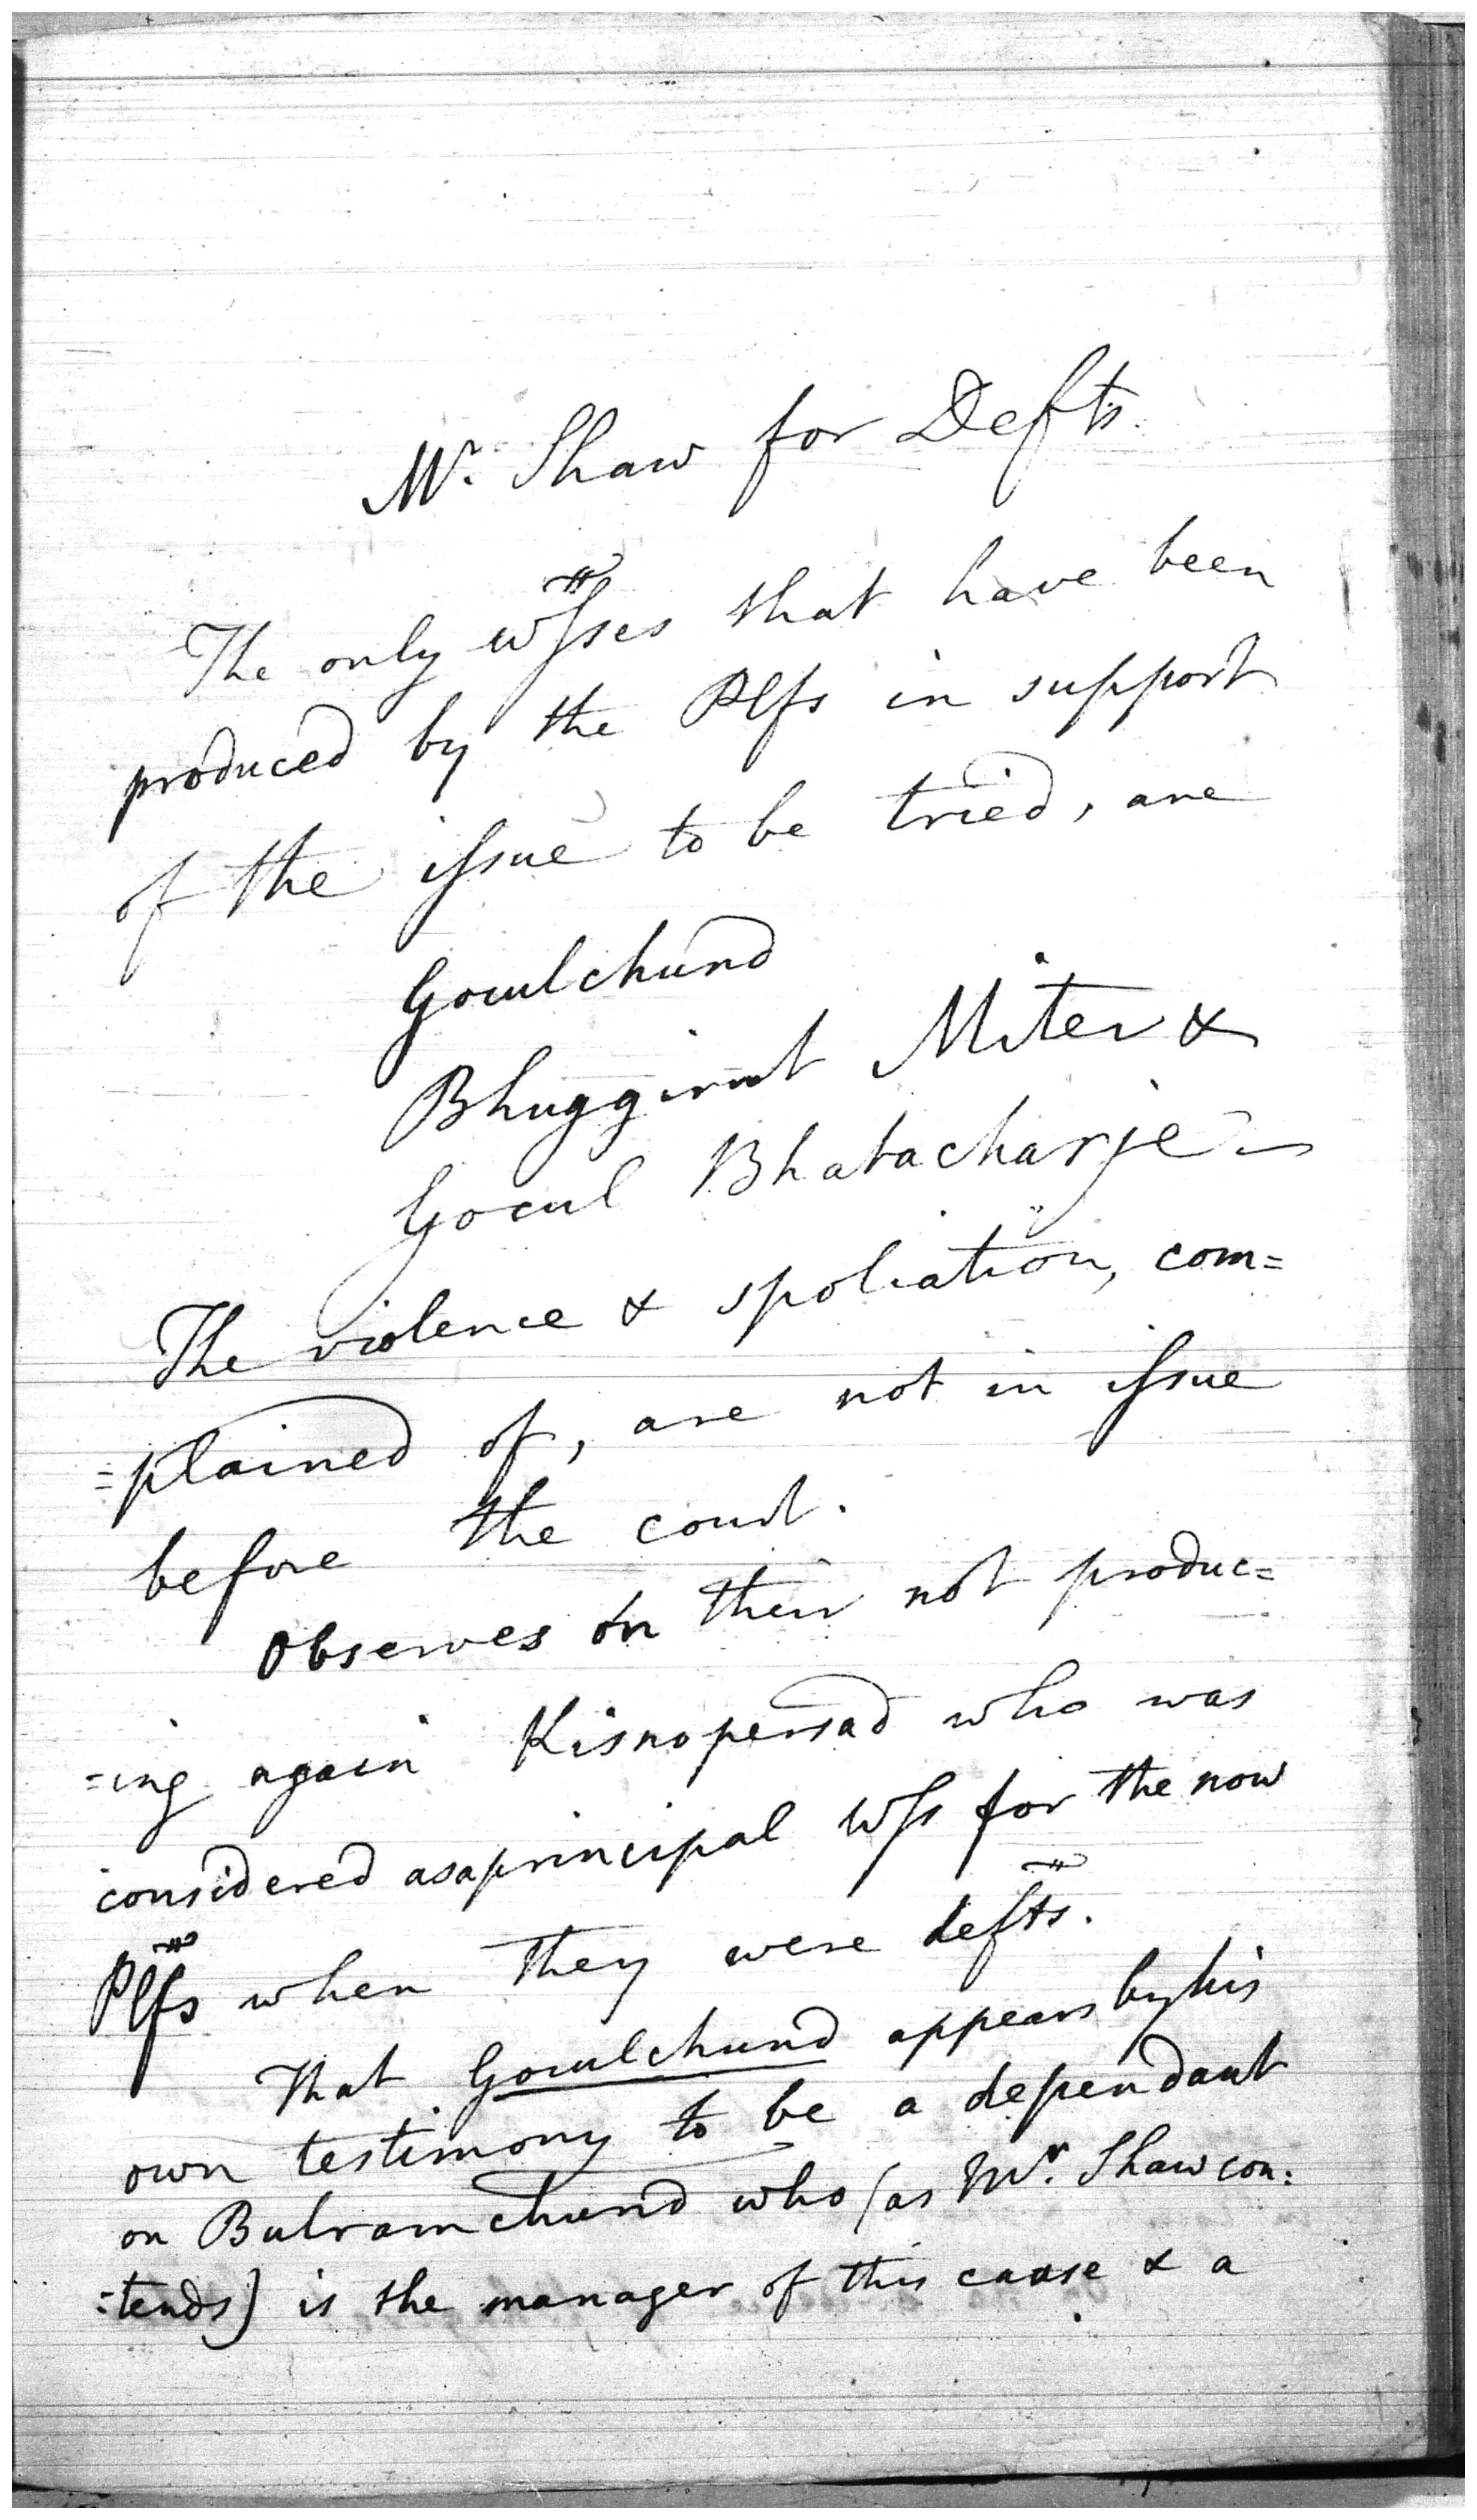 Mr. Shaw for Defts.
The only wsses that have been
produced by the Plfs in support
of the issue to be tried, are
Goculchund
Bhuggirut Miter &
Gocul Bhatacharje
The violence & spoliation, com=
=plained of, are not in issue
before the court.
Observes on their not produc=
=ing again Kisnopersad who was
considered as a principal Wss for the now
Plfs when they were defts.
That Goculchund appears by his
own testimony to be a dependant
on Bulramchund who (as Mr. Shaw con:
:tends) is the manager of this cause & a